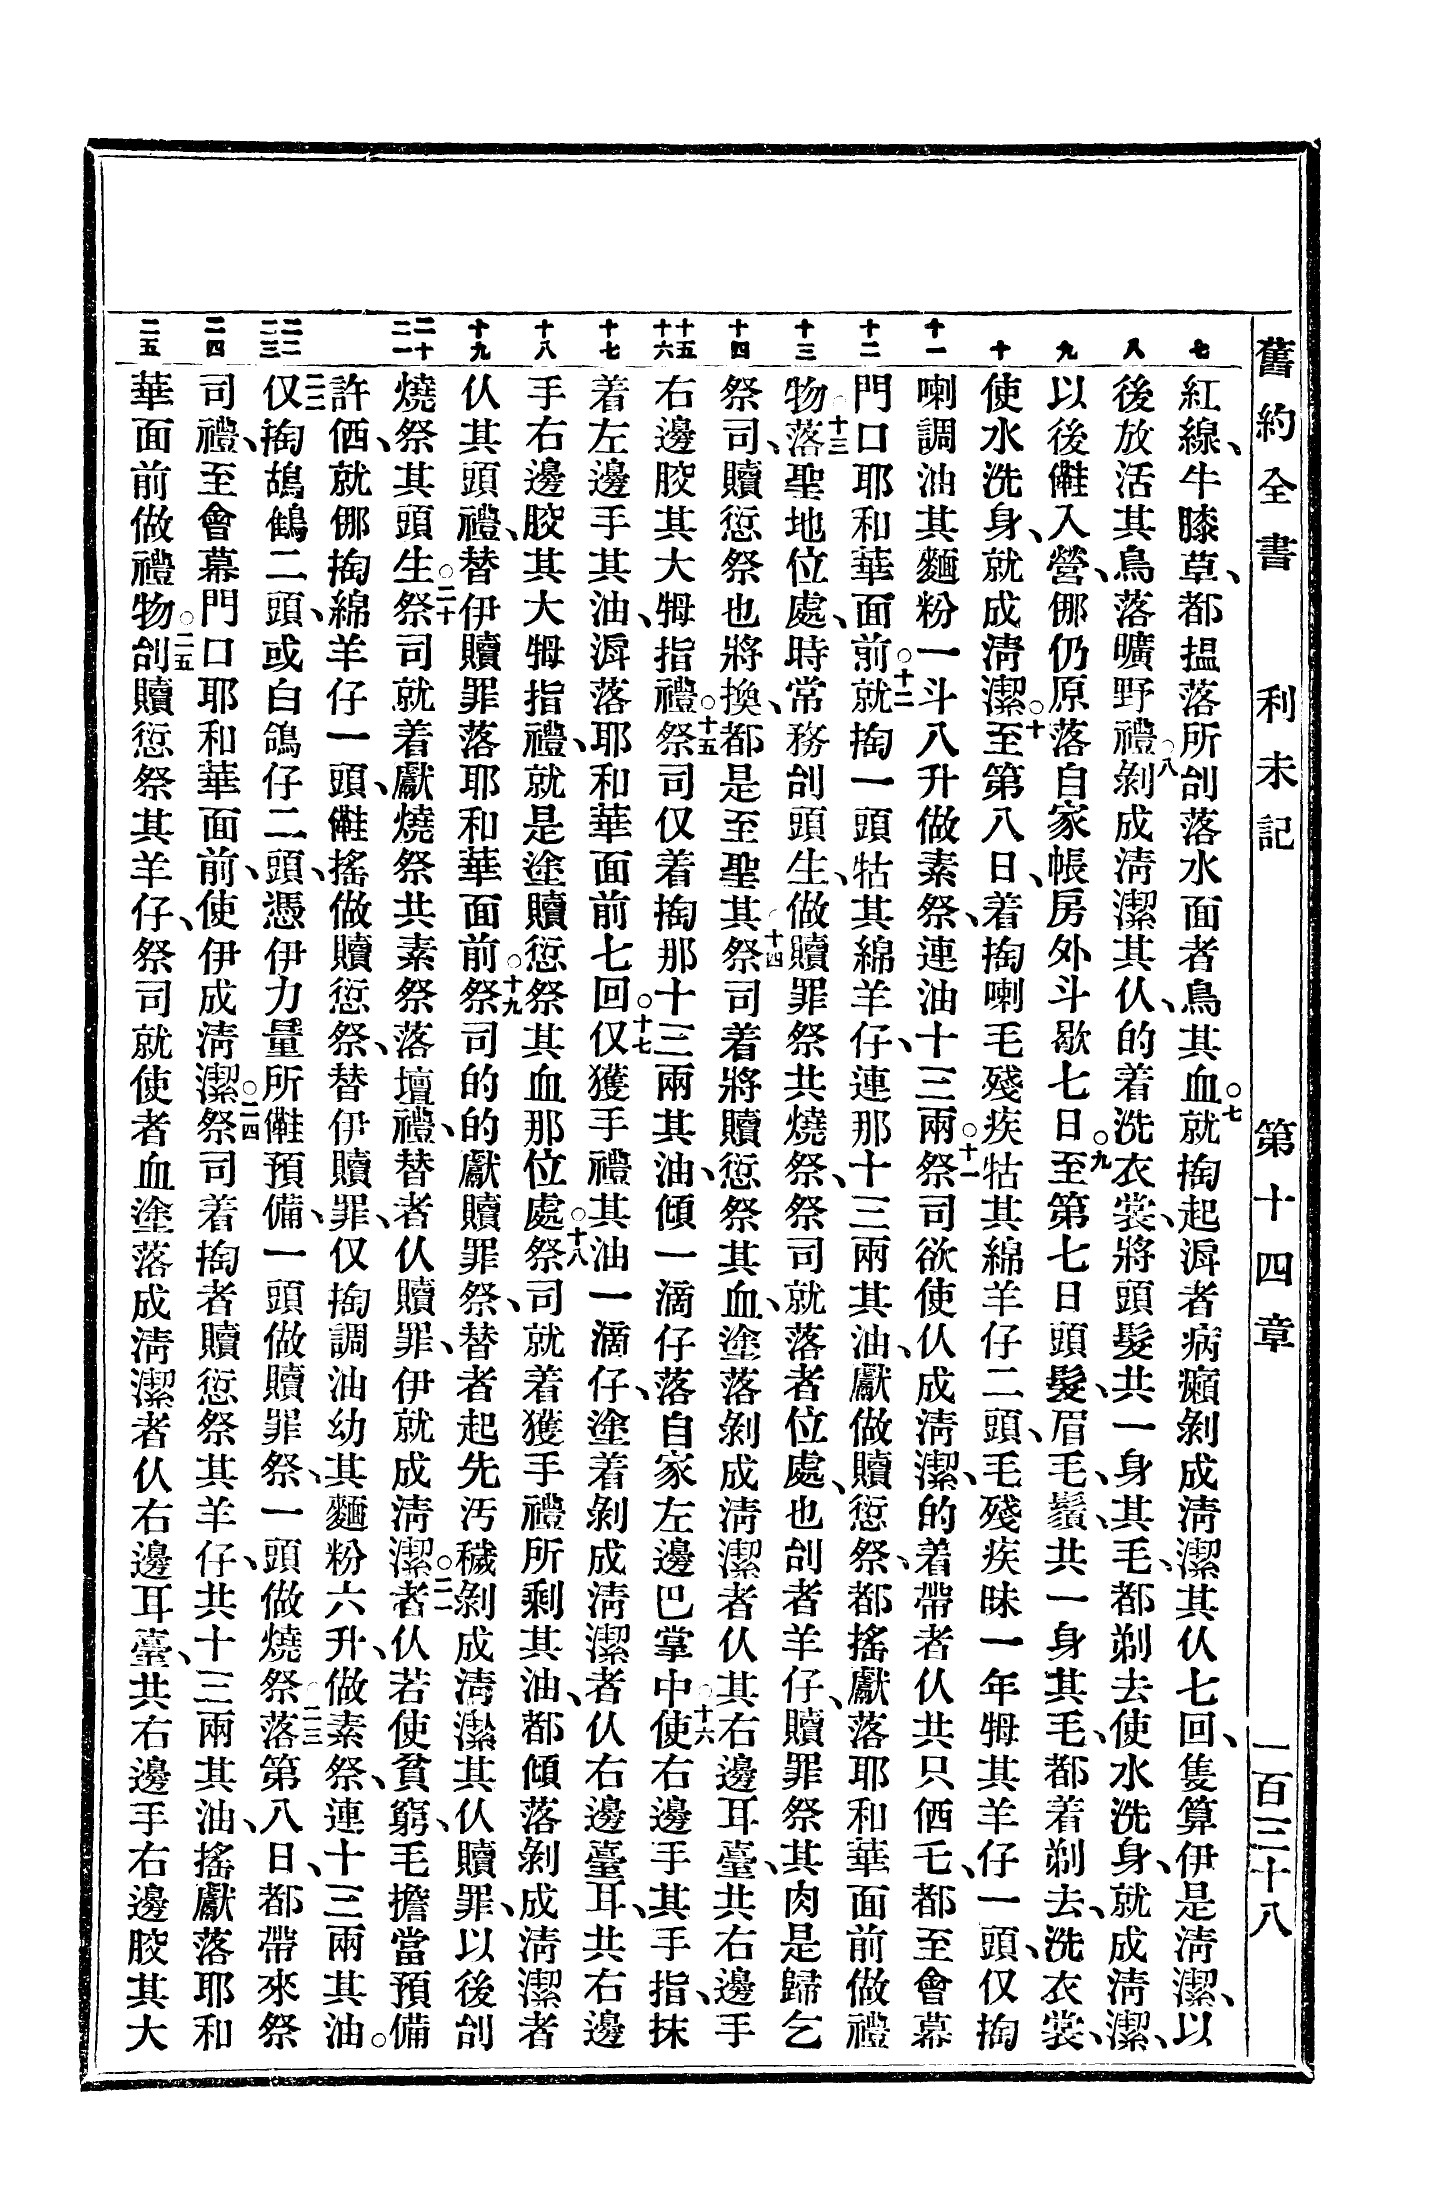 舊約全書 利未記 第十四章 一百三十八
七 八 九 十 十一 十二 十三 十四 十五 十六 十七 十八 十九 二十 二一 二二 二三 二四 二五
紅線、牛膝草、都揾落所刣落水面者鳥其血○七就掏起㴘者病癩剝成淸潔其仈七回、隻算伊是淸潔、以
後放活其鳥落曠野禮○八剝成淸潔其仈、的着洗衣裳、將頭髮共一身其毛、都剃去使水洗身、就成淸潔、
以後儺入營、㑚仍原落自家帳房外斗歇七日○九至第七日頭髮、眉毛、鬚、共一身其毛、都着剃去、洗衣裳、
使水洗身、就成淸潔○十至第八日、着掏喇毛殘疾牯其綿羊仔二頭、毛殘疾昧一年𤙩其羊仔一頭、仅掏
喇調油其麵粉一斗八升做素祭、連油十三兩○十一祭司欲使仈成淸潔、的着帶者仈共只俩乇、都至會幕
門口耶和華面前○十二就掏一頭牯其綿羊仔、連那十三兩其油、獻做贖愆祭、都搖獻落耶和華面前做禮
物○十三落聖地位處、時常務刣頭生、做贖罪祭共燒祭、祭司就落者位處、也刣者羊仔、贖罪祭其肉是歸乞
祭司、贖愆祭也將換、都是至聖其○十四祭司着將贖愆祭其血、塗落剝成淸潔者仈其右邊耳臺、共右邊手
右邊骹其大𤙩指禮○十五祭司仅着掏那十三兩其油、傾一滴仔落自家左邊巴掌中○十六使右邊手其手指、抹
着左邊手其油、㴘落耶和華面前七回○十七仅獲手禮其油一滴仔、塗着剝成淸潔者仈右邊臺耳、共右邊
手右邊骹其大𤙩指禮、就是塗贖愆祭其血那位處○十八祭司就着獲手禮所剩其油、都傾落剝成淸潔者
仈其頭禮、替伊贖罪落耶和華面前○十九祭司的的獻贖罪祭、替者起先汚穢剝成淸潔其仈贖罪、以後刣
燒祭其頭生○二十祭司就着獻燒祭共素祭落壇禮、替者仈贖罪、伊就成淸潔○二一者仈若使貧窮、毛擔當預備
許俩、就㑚掏綿羊仔一頭、儺搖做贖愆祭、替伊贖罪、仅掏調油幼其麵粉六升、做素祭、連十三兩其油。
二二仅掏鴣鶴二頭、或白鴿仔二頭、憑伊力量所儺預備、一頭做贖罪祭、一頭做燒祭○二三落第八日、都帶來祭
司禮、至會幕門口耶和華面前、使伊成淸潔○二四祭司着掏者贖愆祭其羊仔、共十三兩其油、搖獻落耶和
華面前做禮物○二五刣贖愆祭其羊仔、祭司就使者血塗落成淸潔者仈右邊耳臺、共右邊手右邊骹其大